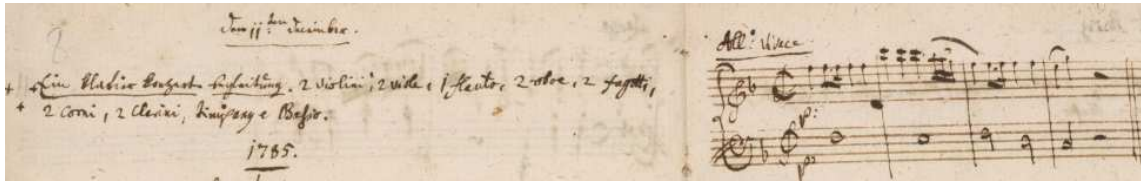 Den 11:ten December.
Allº: vivace
Ein Klavier konzert. begleitung. 2 violini, 2 viole, 1 flauto, 2 oboe, 2 fagotti,
2 Corni, 2 Clarini, timpany e Baßo.
p:
p:
1785.